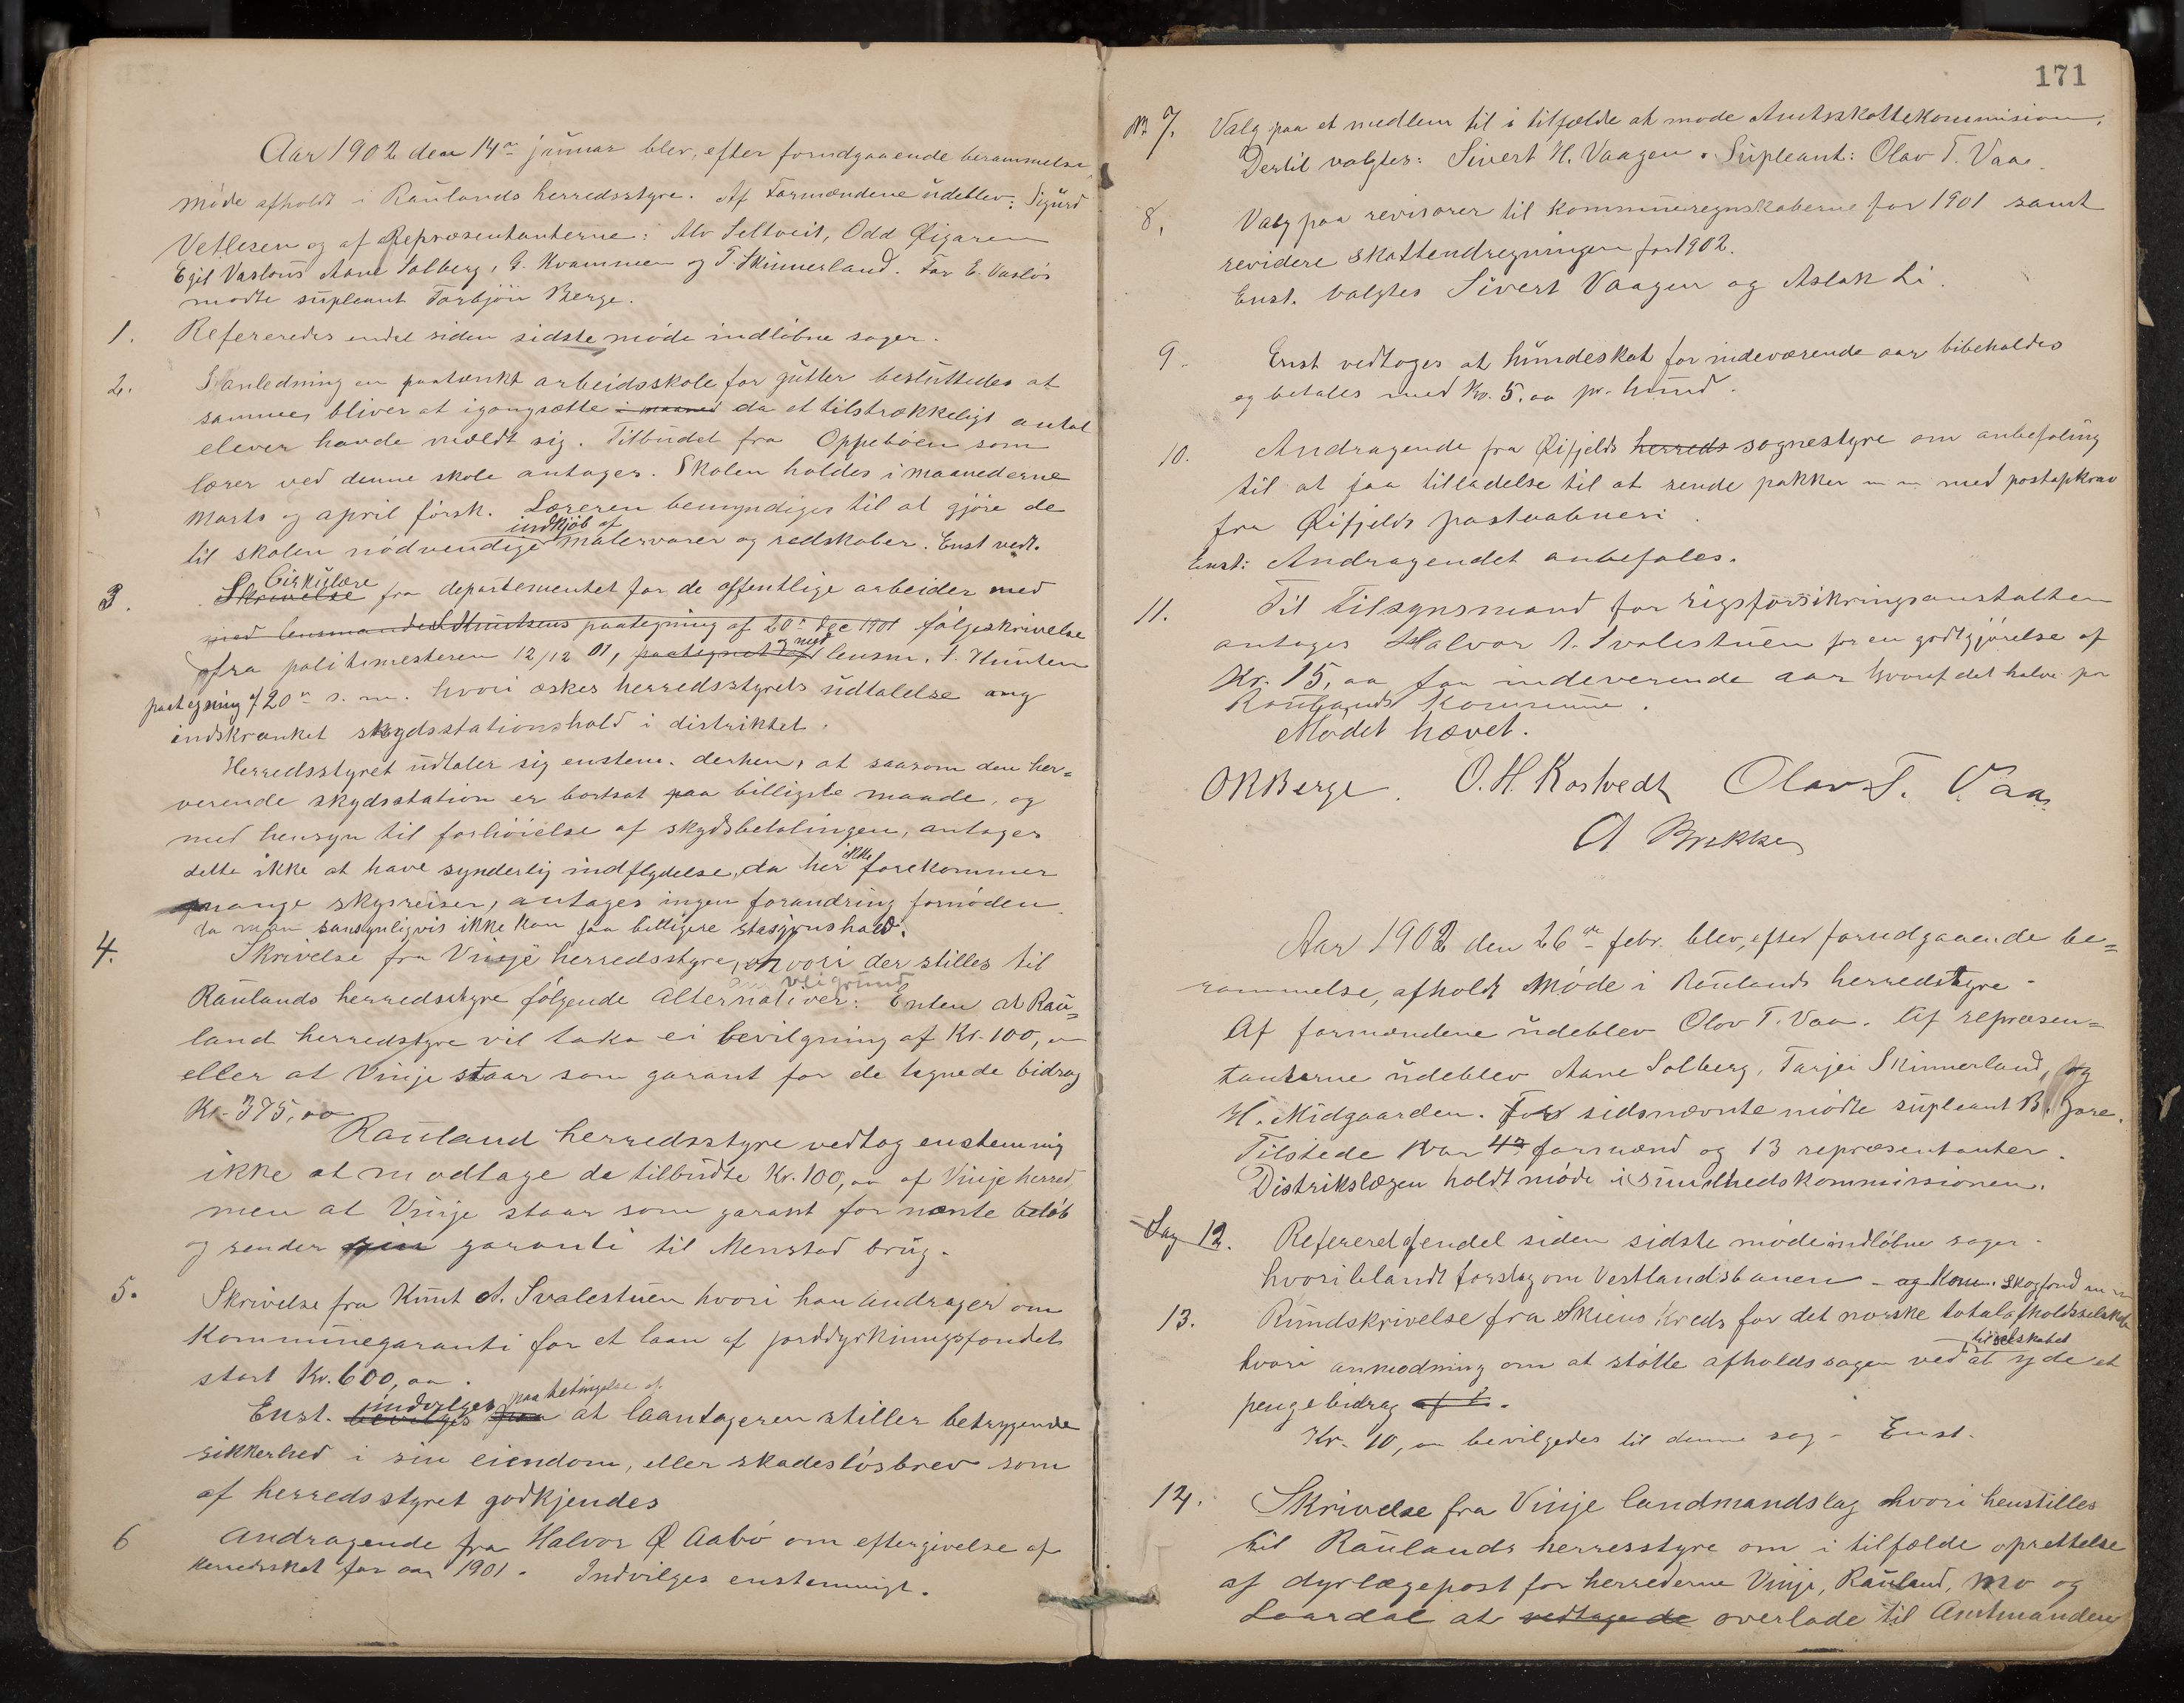 Aar 1902 den 14de januar blev, efter forudgaaende berammelse
møde afholdt i Raulands herredsstyre. Af Formændene udeblev: Sigurd
Vetlesen og af Repræsentanterne: Alv Seltveit, Odd Øigaren
Egil Vaslous Aane Solberg, G. Kvammen og T. Skinnerland. For E. Vasløs
mødte supleant Torbjön Berge.
1. Refereredes endel siden sidste møde indløbne sager.
2. I anledning en paatænkt arbeidsskole for gutter besluttedes at
sammes bliver at igangsætte i maaned da et tilstrækkeligt antal
elever havde meldt sig. Tilbudet fra Oppebøen som
lærer ved denne skole antages. Skolen holdes i maanederne
Marts og april førsk. Læreren bemyndiges til at gjöre de
indkjøb af
til skolen nødvendige matervarer og redskaber. Enst vedt.
Cirkulære
3. Skrivelse fra departementet for de offentlige arbeider med
med lensmanden Knutsens paategning af 20de Dec 1901 følgeskrivelse
og med
fra politimesteren 12/12 01, paategnet af lensm. Knuten
paategning af 20de s. m. hvori æskes herredsstyrets udtalelse ang
indskrænket skydsstationshold i distriktet.
Herredsstyret udtaler sig enstem. derhen, at saasom den her-
verende skydsstation er bortsat paa billigste maade, og
med hensyn til forhöielse af skydsbetalingen, antages
ikke
dette ikke at have synderlig indflydelse, da her forekommer
mange skysreiser, antages ingen forandring fornøden
da man sansynligvis ikke kan faa billigere stasjonshold.
4. Skrivelse fra Vinje herredsstyre, hvori der stilles til
veigrund
Raulands herredsstyre følgende alternativer: Enten at Rau-
land herredstyre vil taka ei bevilgning af Kr. 100,00
eller at Vinje staar som garant for de tegnede bidrag
Kr. 375,00
Rauland herredsstyre vedtog enstemmig
ikke at modtage de tilbudte Kr. 100,00 af Vinje herred
men at Vinje staar som garant for nænte beløb
og sender sin garanti til Menstad brug.
5. Skrivelse fra Knut A. Svalestuen hvori han andrager om
Kommunegaranti for et laan af jorddyrkningsfondet
stort Kr. 600,00.
indvilges paa betingelse af
Enst. bevilges paa at laantageren stiller betryggende
sikkerhed i sin eiendom, eller skadesløsbrev som
af herredsstyret godkjendes
6 Andragende fra Halvor Ø Aabø om eftergivelse af
Herredsskat for aar 1901. Indvilges enstemmigt.
171
No 7. Valg paa et medlem til i tilfælde at møde Amtsskattekommision.
Dertil valgtes: Sivert H. Vaagen. Supleant: Olav T. Vaa.
8. Valg paa revisorer til kommuneregnskaberne for 1901 samt
revidere skattendregningen for 1902.
Enst. valgtes Sivert Vaagen og Aslak Li.
9. Enst vedtoges at hundeskat for indeværende aar bibeholdes
og betales med Kr. 5.00 pr. hund.
10. Andragende fra Øifjelds herreds sognestyre om anbefaling
til at faa tilladelse til at sende pakker m m med postopkrav
fra Øifjelds postaabneri.
Enst: Andragendet anbefales.
11. Til Tilsynsmand for rigsforsikringsanstalten
antages Halvor A. Svalestuen for en godtgjørelse af
Kr. 15,00 for indeverende aar hvoraf det halve for
Raulands Kommune.
Mødet hævet.
OKBerge. O. H. Kostvedt Olav T. Vaa
A Brekke
Aar 1902 den 26de febr. blev, efter forudgaaende be-
rammelse, afholdt Møde i Raulands herredstyre.
Af formændene udeblev Olov T. Vaa. Af repræsen-
tanterne udeblev Aane Solberg, Tarjei Skinnerland, og
H. Midgaarden. For sidsnævnte mødte supleant B. Gare.
Tilstede var 4 formænd og 13 repræsentanter.
Distrikslægen holdt møde i sundhedskommissionen.
Sag 12. Refereret endel siden sidste møde indløbne sager.
hvoriblandt forslag om Vestlandsbanen - og Kom. skogfond m m
13. Rundskrivelse fra Skiens Kreds for det norske totalafholdsselskab
til selskabet
hvori anmodning om at støtte afholdssagen ved at yde et
pengebidrag af t.
Kr. 10,00 bevilgedes til denne sag - Enst.
14. Skrivelse fra Vinje landmandslag hvori henstilles
til Raulands herresstyre om i tilfælde oprettelse
af dyrlægepost for herrederne Vinje, Rauland, Mo og
Laardal at vedtage de overlade til Amtmanden